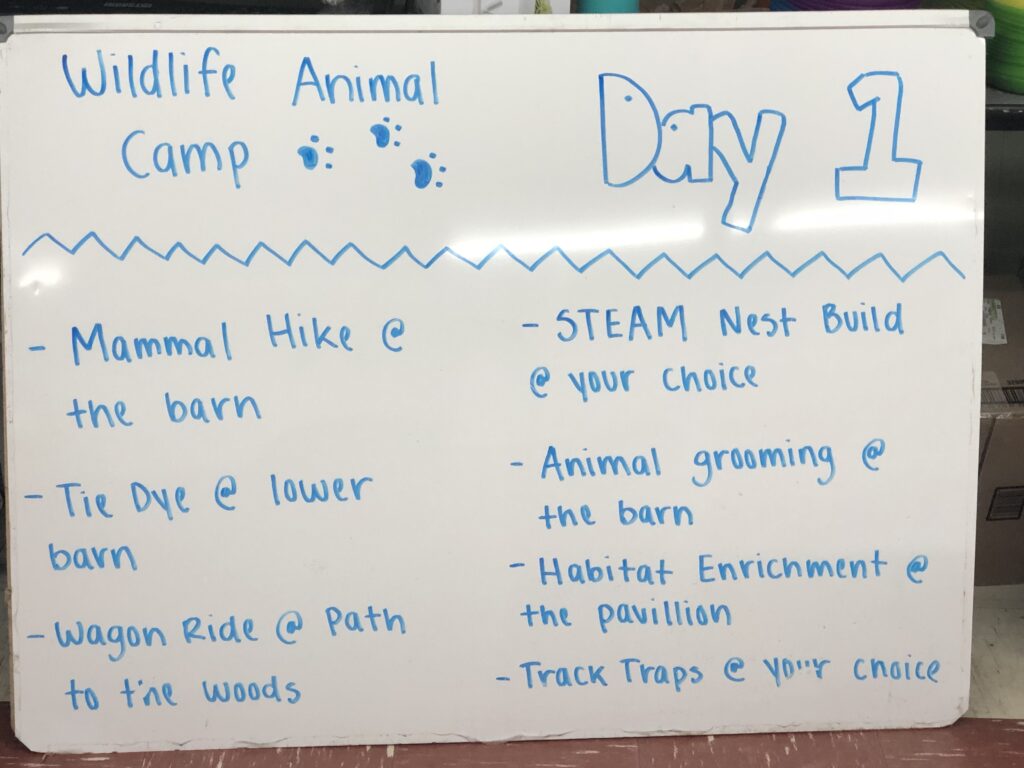 Wildlife Animal
Camp
Day 1
- Mammal Hike @
the barn
- Tie Dye @ lower
barn
- Wagon Ride @ Path
to the woods
- STEAM Nest Build
@ your choice
- Animal grooming @
the barn
- Habitat Enrichment @
the pavillion
- Track Traps @ your choice